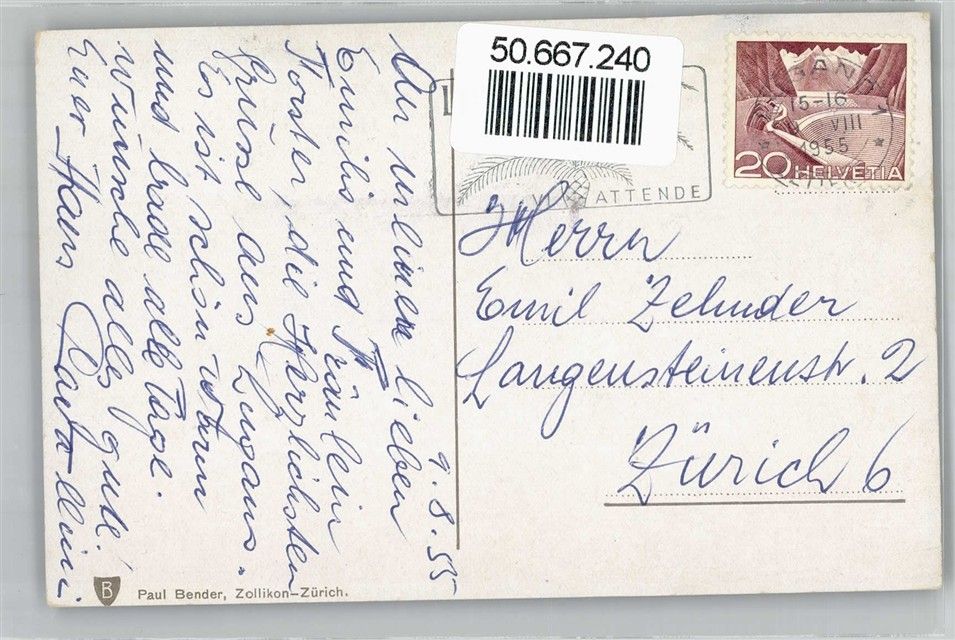 9.8.55
An unsere lieben
Emilis und Fräulein
Forster, die Herzlichsten
Grüsse aus Lugano.
Es ist schön warm
und bade alle Tage.
Wünsche alles gute!
Euer Hans
Paul Bender, Zollikon-Zürich.
B
50.667.240
ATTENDE
15-16
VIII
1955
20 HELVETIA
Herrn
Emil Zehnder
Langensteinenstr. 2
Zürich 6